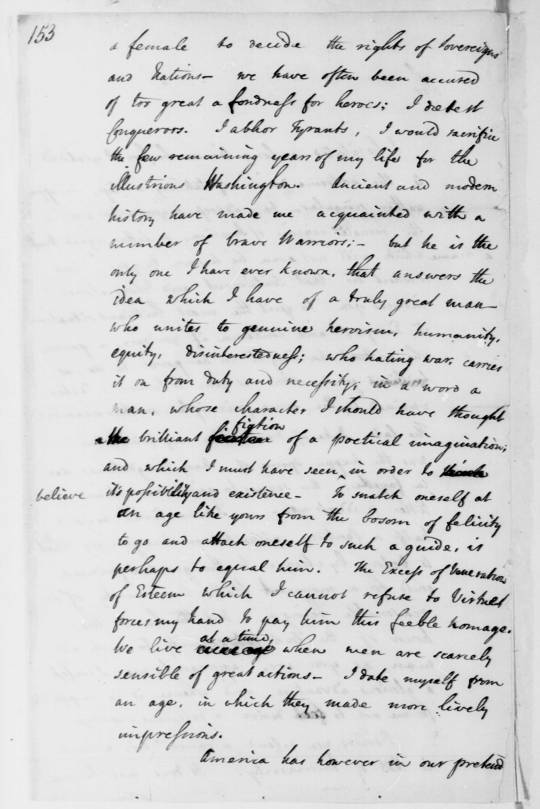 153
a female to decide the rights of Sovereigns
and Nations— we have often been accused
of too great a fondness for heroes; I detest
Conquerors. I abhor Tyrants, I would sacrifice
the few remaining years of my life for the
illustrious Washington. Ancient and modern
history have made me acquainted with a
number of brave Warriors;— but he is the
only one I have ever known, that answers the
idea which I have of a truly great man—
who unites to genuine heroism, humanity,
equity, disinterestedness; who hating war, carries
it on from duty and necessity, in a word a
man, whose character I should have thought
fiction
the brilliant of a poetical imagination;
and which I must have seen, in order to
believe its possibility and existence— To snatch oneself at
an age like yours from the bosom of felicity
to go and attach oneself to such a guide, is
perhaps to equal him. The Excess of Veneration
of Esteem which I cannot refuse to Virtue
forces my hand to pay him this feeble homage.
at a time,
We live when men are scarcely
sensible of great actions— I date myself from
an age, in which they made more lively
impressions.
America has however in our pretend